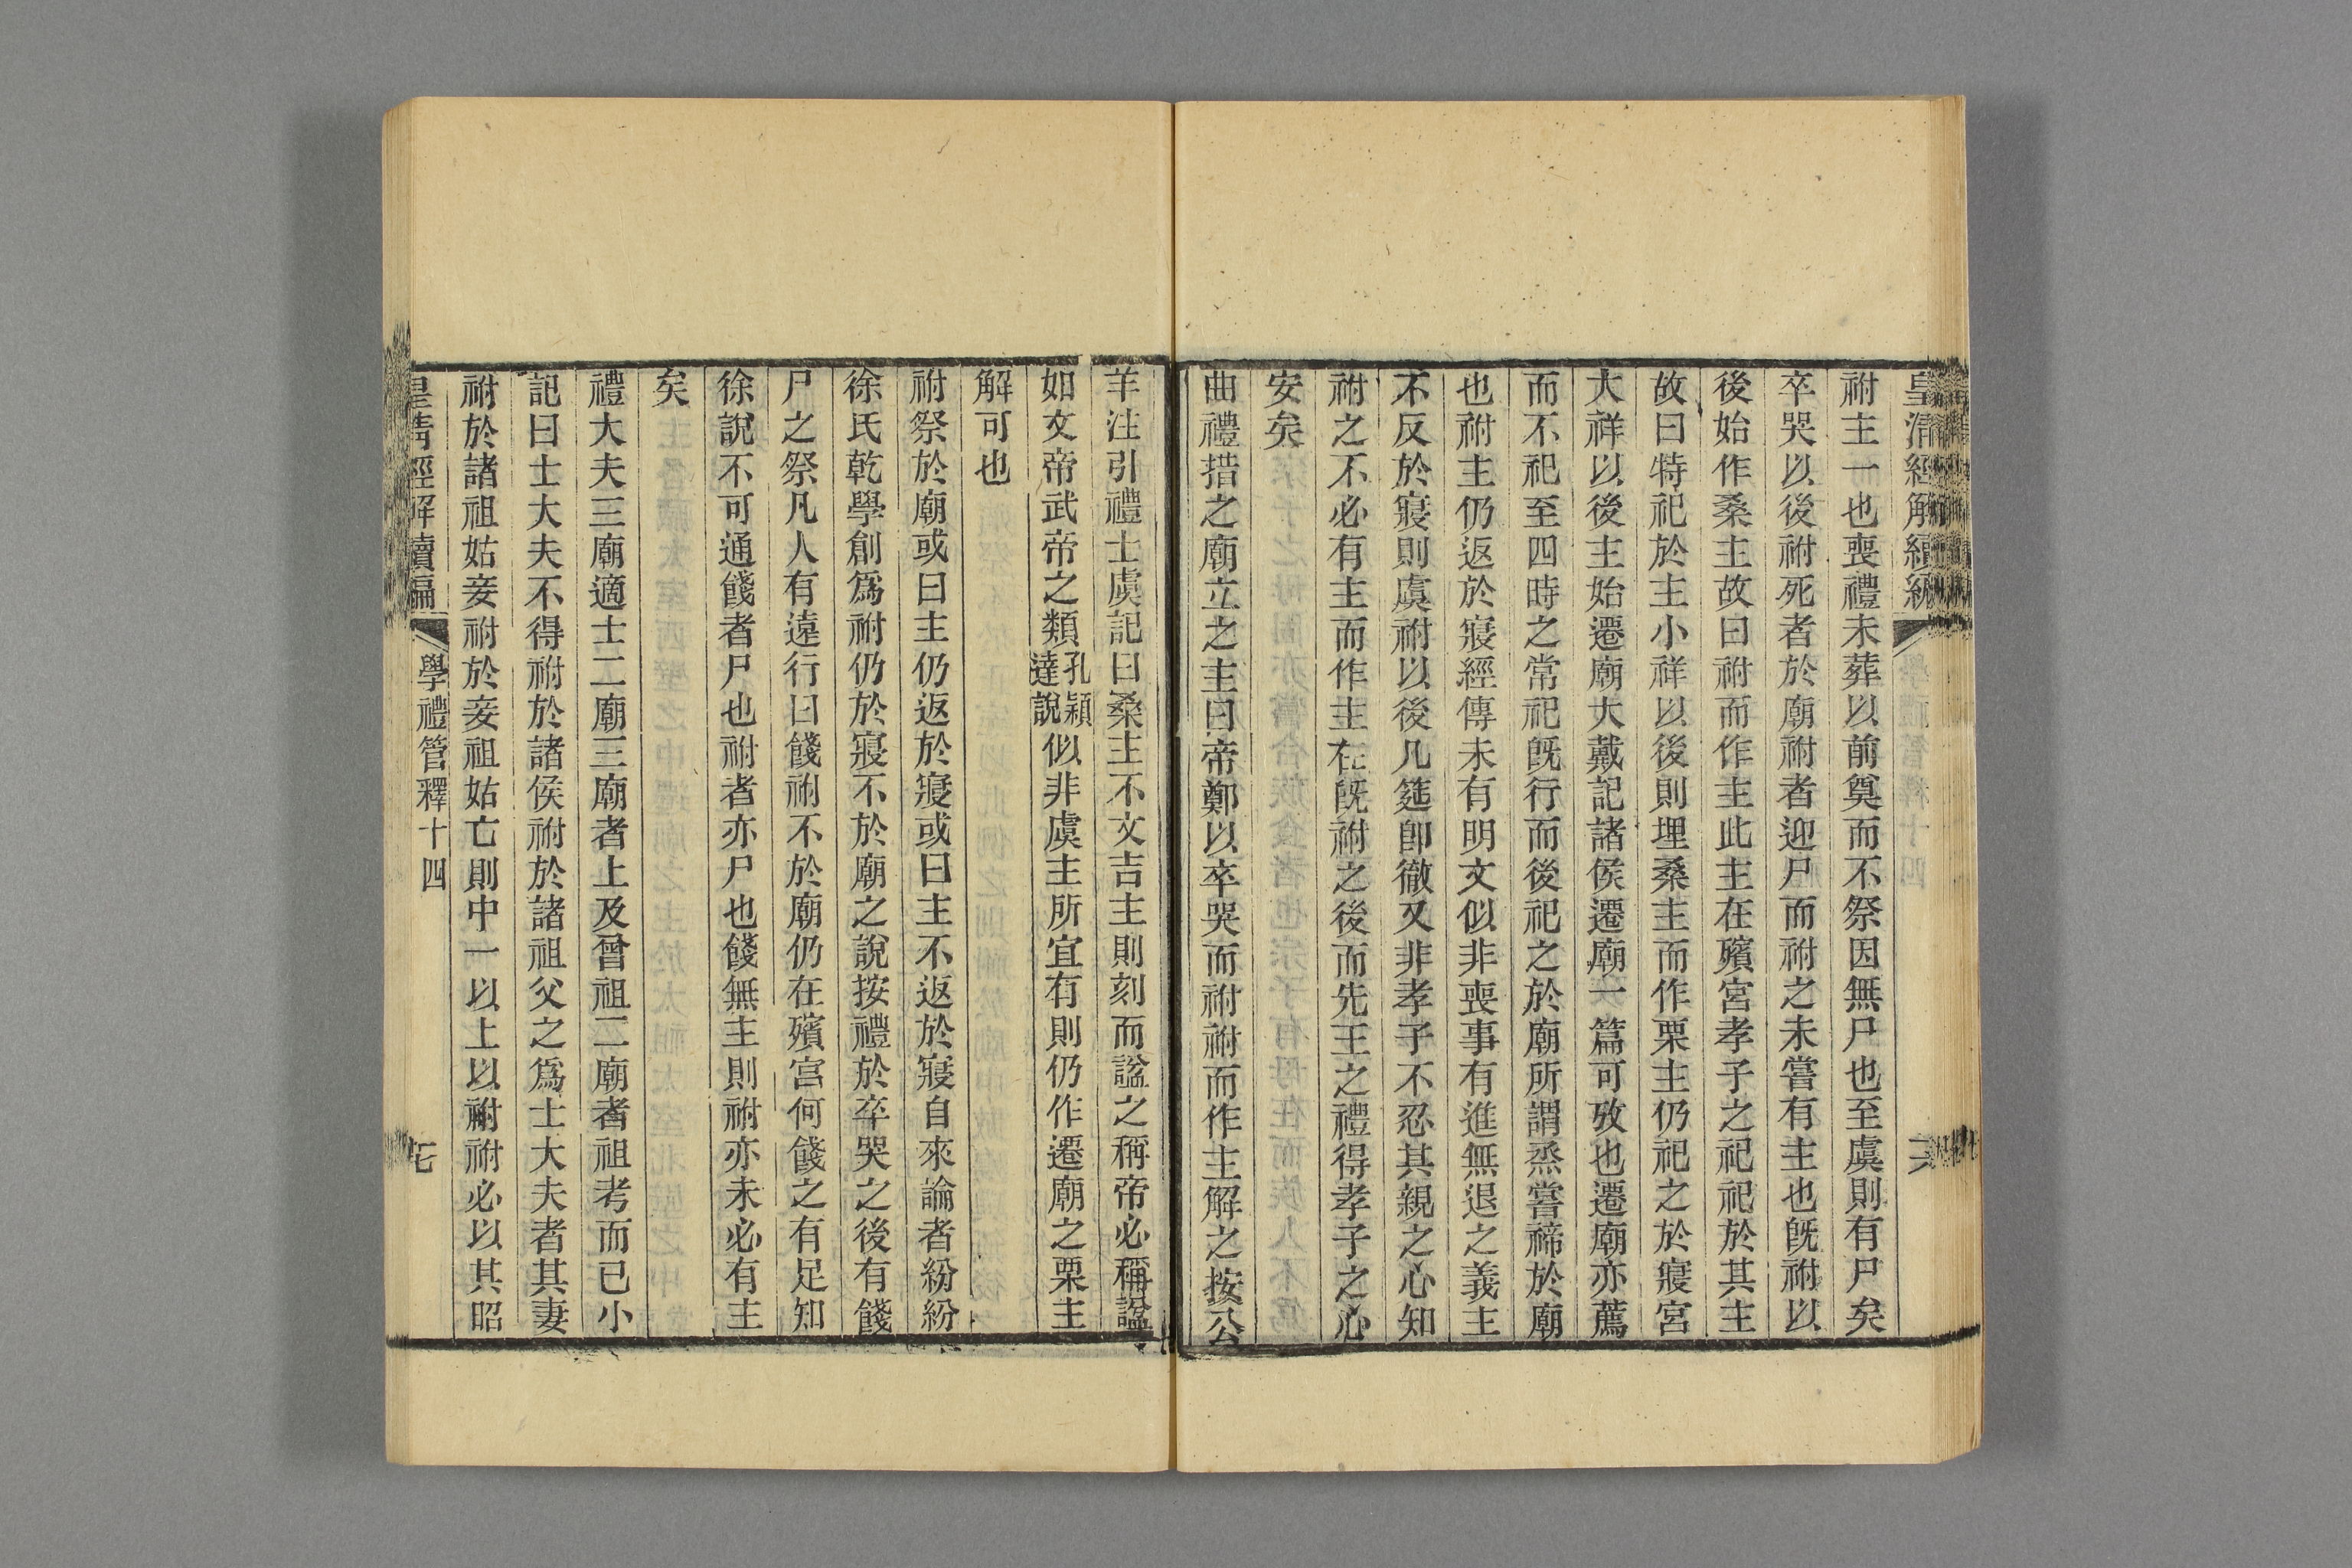 皇清經解續編
祔主一也喪禮未葬以前奠而不祭因無尸也至虞則有尸矣
卒哭以後祔死者於廟祔者迎尸而祔之未嘗有主也旣祔以
後始作桑主故曰祔而作主此主在殯宮孝子之祀祀於其主
故曰特祀於主小祥以後則埋桑主而作栗主仍祀之於寢宮
大祥以後主始遷廟大戴記諸侯遷廟一篇可攷也遷廟亦薦
而不祀至四時之常祀旣行而後祀之於廟所謂烝嘗禘於廟
也祔主仍返於寢經傳未有明文似非喪事有進無退之義主
不反於寢則虞祔以後几筵卽徹又非孝子不忍其親之心知
祔之不必有主而作主在旣祔之後而先王之禮得孝子之心
安矣
曲禮措之廟立之主曰帝鄭以卒哭而祔祔而作主解之按公
羊注引禮士虞記曰桑主不文吉主則刻而諡之稱帝必稱諡
如文帝武帝之類孔穎達說似非虞主所宜有則仍作遷廟之栗主
解可也
祔祭於廟或曰主仍返於寢或曰主不返於寢自來論者紛紛
徐氏乾學創爲祔仍於寢不於廟之說按禮於卒哭之後有餞
尸之祭凡人有遠行曰餞祔不於廟仍在殯宮何餞之有足知
徐說不可通餞者尸也祔者亦尸也餞無主則祔亦未必有主
矣
禮大夫三廟適士二廟三廟者上及曾祖二廟者祖考而已小
記曰士大夫不得祔於諸侯祔於諸祖父之爲士大夫者其妻
祔於諸祖姑妾祔於妾祖姑亡則中一以上以祔祔必以其昭
皇清經解續編
學禮管釋十四